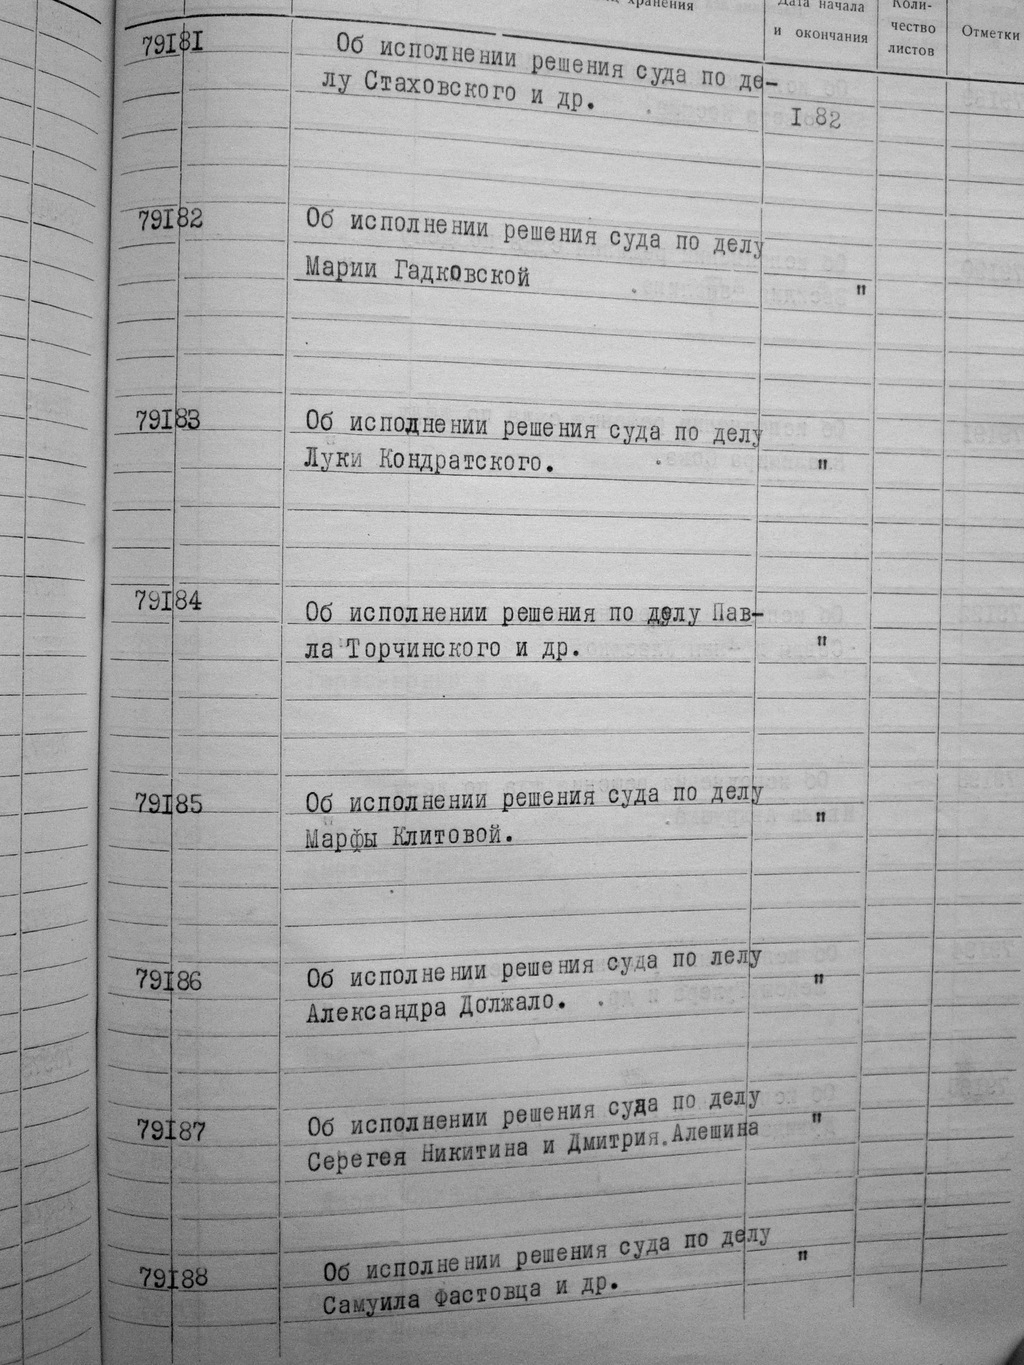 хранения
Дата начала
и окончания
Коли-
чество
листов
Отметки
79I8I
Об исполнении решения суда по де-
лу Стаховского и др.
I 82
79I82
Об исполнении решения суда по делу
Марии Гадковской "
79I83
Об исполнении решения суда по делу
Луки Кондратского. "
79I84
Об исполнении решения по делу Пав-
ла Торчинского и др. "
79I85
Об исполнении решения суда по делу
Марфы Клитовой. "
79I86
Об исполнении решения суда по лелу
Александра Должало. "
79I87
Об исполнении решения суда по делу
Серегея Никитина и Дмитрия.Алешина "
79I88
Об исполнении решения суда по делу
Самуила Фастовца и др. "